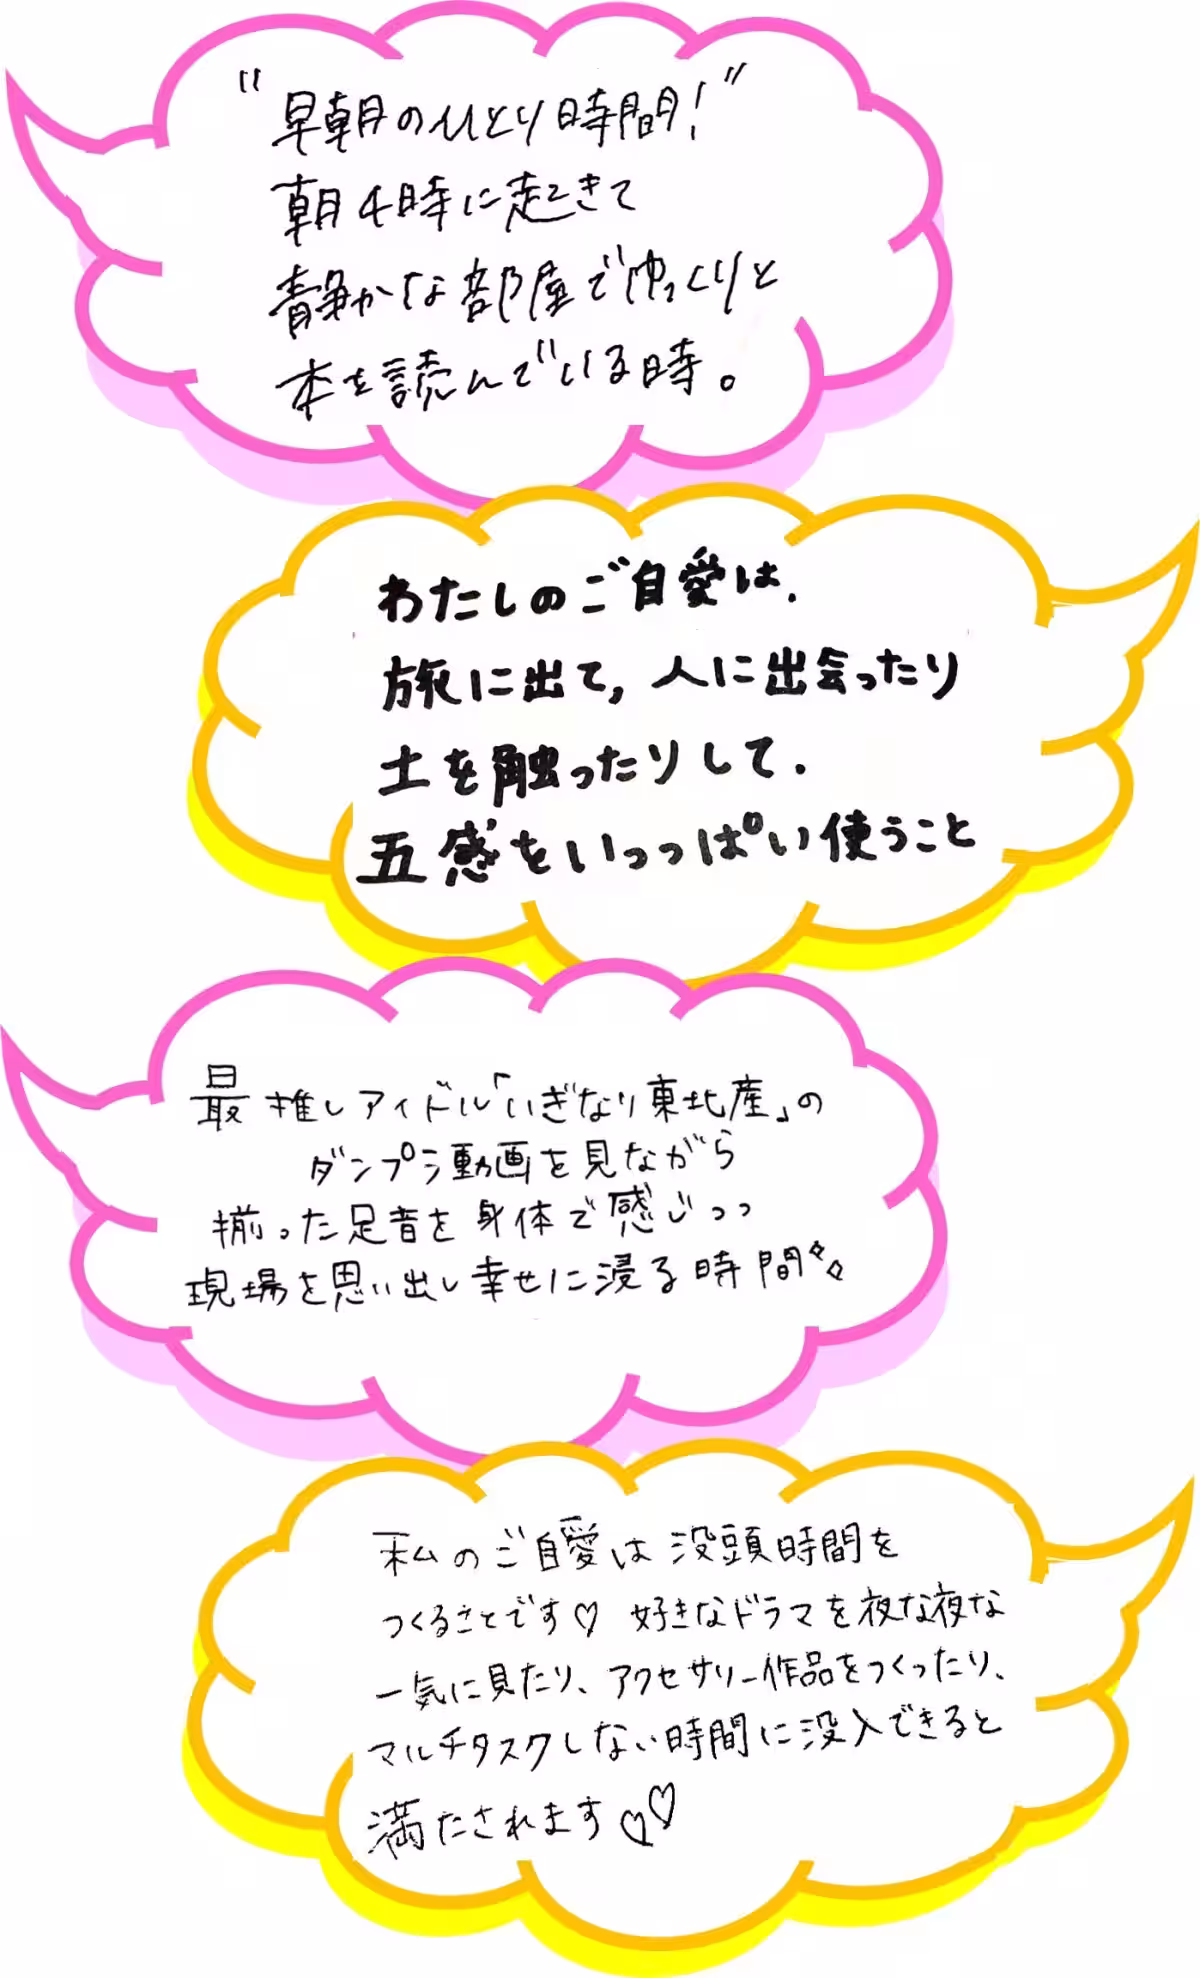 "早朝のひとり時間!"
朝4時に起きて
静かな部屋でゆっくりと
本を読んでいる時。
わたしのご自愛は、
旅に出て、人に出会ったり
土を触ったりして、
五感をいっっぱい使うこと
最推しアイドル「いぎなり東北産」の
ダンプラ動画を見ながら
揃った足音を身体で感じっっ
現場を思い出し幸せに浸る時間✧✧
私のご自愛は没頭時間を
つくることです♡ 好きなドラマを夜な夜な
一気に見たり、アクセサリー作品をつくったり、
マルチタスクしない時間に没入できると
満たされます♡♡